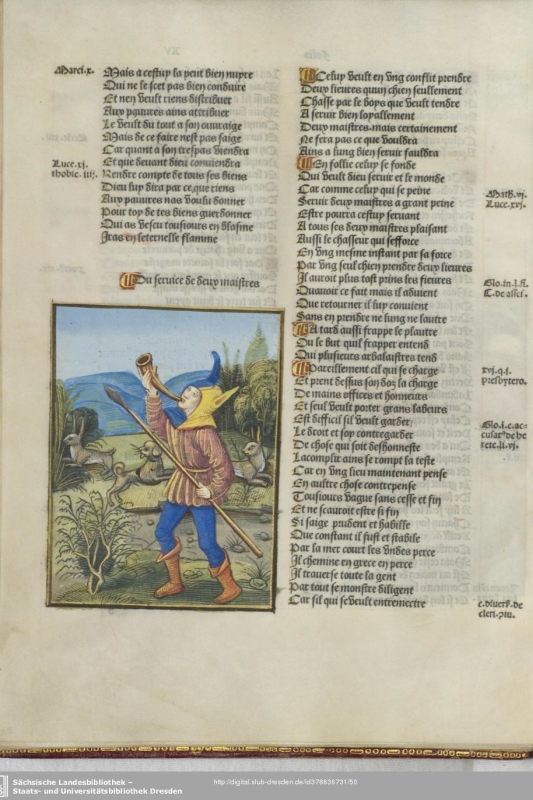 Marci.x.
Mais a cestuy la peut bien nuyre
Qui ne le scet pas bien conduire
Et nen veult riens distribuer
Aux pauures ains attribuer
Le veult du tout a son ouuraige
Mais de ce faire nest pas saige
Car quant a son trespas viendra
Luce.xj.
thobie. iiij.
Et que deuant dieu conuiendra
Rendre compte de tous ses biens
Dieu luy dira par ce que riens
Aux pauures nas voulu donner
Pour top de tes biens guerdonner
Qui as vescu tousiours en blasme
Iras en leternelle flamme
Du seruice de deux maistres
Celuy veult en vng conflit prendre
Deux lieures quun chien seullement
Chasse par le boys que veult tendre
A seruir bien loyallement
Deux maistres. mais certainement
Ne fera pas ce que vouldra
Ains a lung bien seruir fauldra
En follie celuy se fonde
Qui veult dieu seruir et le monde
Math.vj.
Luce.xvj.
Car comme celuy qui se peine
Seruir deux maistres a grant peine
Estre pourra cestuy seruant
A tous ses deux maistres plaisant
Aussi le chasseur qui sefforce
En vng mesme instant par sa force
Par vng seul chien prendre deux lieures
Il auroit plus tost prins les fieures
Quauoit ce fait mais il aduient
Que retourner il luy conuient
Sans en prendre ne lung ne lautre
A tard aussi frappe le plautre
Ou le but quil frapper entend
Qui plusieurs arbalaistres tend
Pareillement cil qui se charge
xvj.q.j.
presbytero.
Et prent dessus son doz la charge
De mains offices et honneurs
Et seul veult porter grans labeurs
Est difficil sil veult garder
Le droit et soy contregarder
De chose qui soit deshonneste
Lacomplit ains se rompt la teste
Car en vng lieu maintenant pense
En aultre chose contrepense
Tousiours vague sans cesse et fin
Et ne scauroit estre si fin
Si saige prudent et habille
Que constant il fust et stabile
Par la mer court les vndes perce
Il chemine en grece en perce
Il trauerse toute la gent
Par tout se monstre diligent
Car sil qui se veult entremectre
Sächsische Landesbibliothek –
Staats- und Universitätsbibliothek Dresden